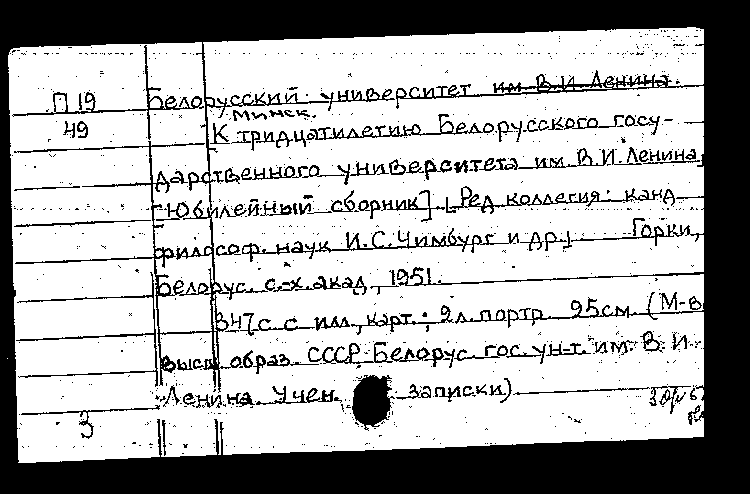 П 19 Белорусский университет им В.И. Ленина.
49 Минск.
К тридцатилетию Белорусского госу-
дарственного университета им. В.И. Ленина,
[Юбилейный сборник]. [Ред коллегия: канд
философ. наук И.С. Чимбург и др.] Горки,
Белорус. с.-х. акад, 1951.
347 с. с илл., карт.; 2 л. портр. 25 см. (М-в
высш. образ. СССР. Белорус. гос. ун-т. им. В. И
Ленина. Учен. записки)
3